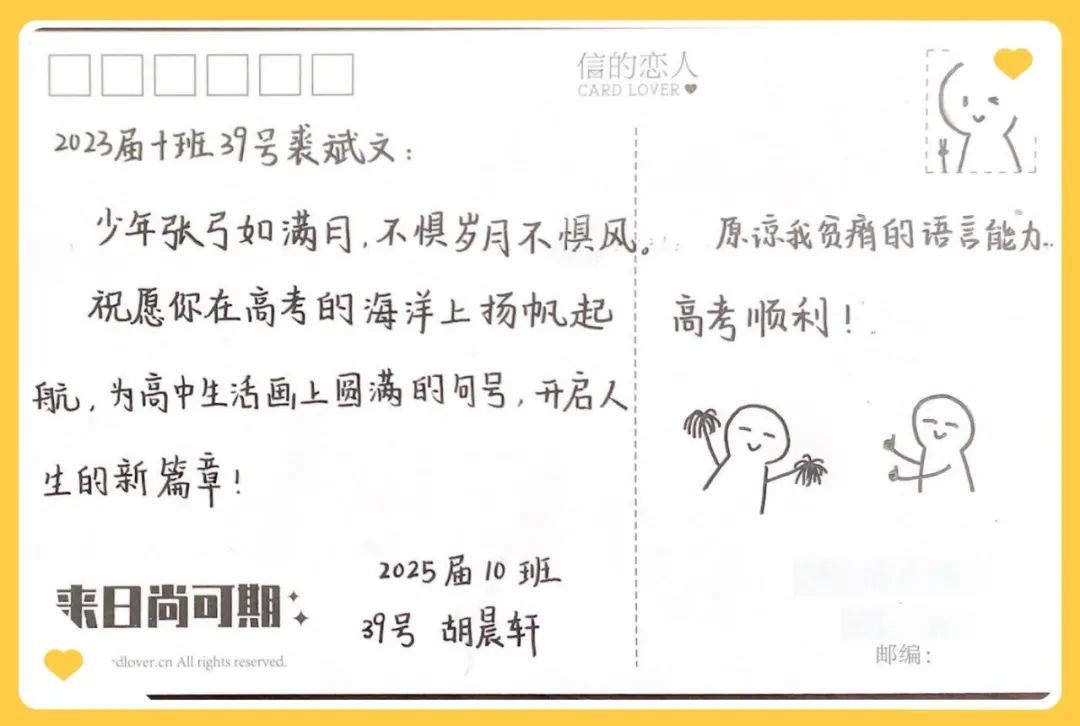 信的恋人
CARD LOVER
2023届十班39号裘斌文：
少年张弓如满月，不惧岁月不惧风。
祝愿你在高考的海洋上扬帆起
航，为高中生活画上圆满的句号，开启人
生的新篇章！
2025届10班
39号 胡晨轩
来日尚可期
dlover.cn All rights reserved.
原谅我贫瘠的语言能力..
高考顺利！
邮编：